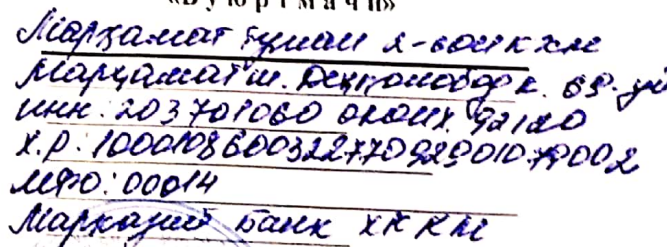 «Буюртмачи»
Марҳамат туман 2-сон КХМ
Марҳамат ш. Деҳқонобод к. 69-уй
ИНН: 203701060 ОКОНХ 92120
Х.Р: 100010860032277092901079002
МФО: 00014
Марказий банк ХККМ